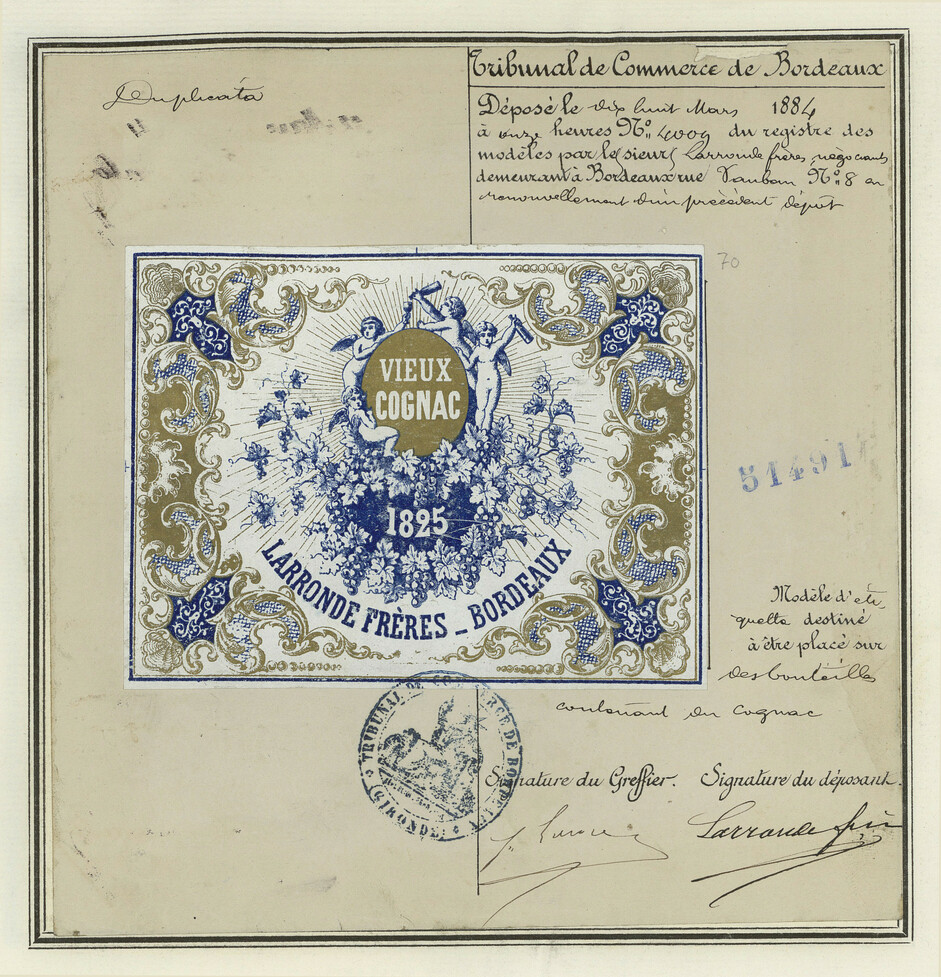 Duplicata
Tribunal de Commerce de Bordeaux
Déposé le dix huit Mars 1884
à onze heures N° 4009 du registre des
modèles par le (sieur) Larronde frères, négociants
demeurant à Bordeaux rue Vauban N° 8 en
renouvellement d'un précédent dépôt
70
VIEUX
COGNAC
1825
LARRONDE FRÈRES _ BORDEAUX
51491
Modèle d'éti-
quette destiné
à être placé sur
des bouteilles
contenant du cognac
TRIBUNAL DE COMMERCE DE BORDEAUX
(GIRONDE)
Signature du Greffier. Signature du déposant.
Larronde frères